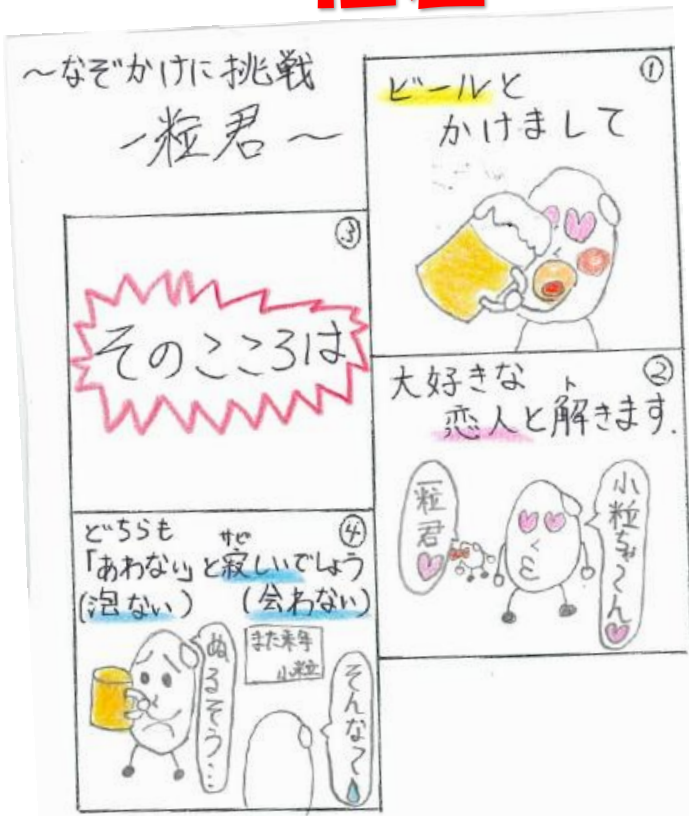 ～なぞかけに挑戦
一粒君～
①
ビールと
かけまして
②
大好きな
恋人と解きます。
ト
小粒ちゃ～ん
一粒君
③
そのこころは
④
どちらも
「あわない」と寂しいでしょう
サビ
(泡ない) (会わない)
ぬるそう…
また来年
小粒
そんなて